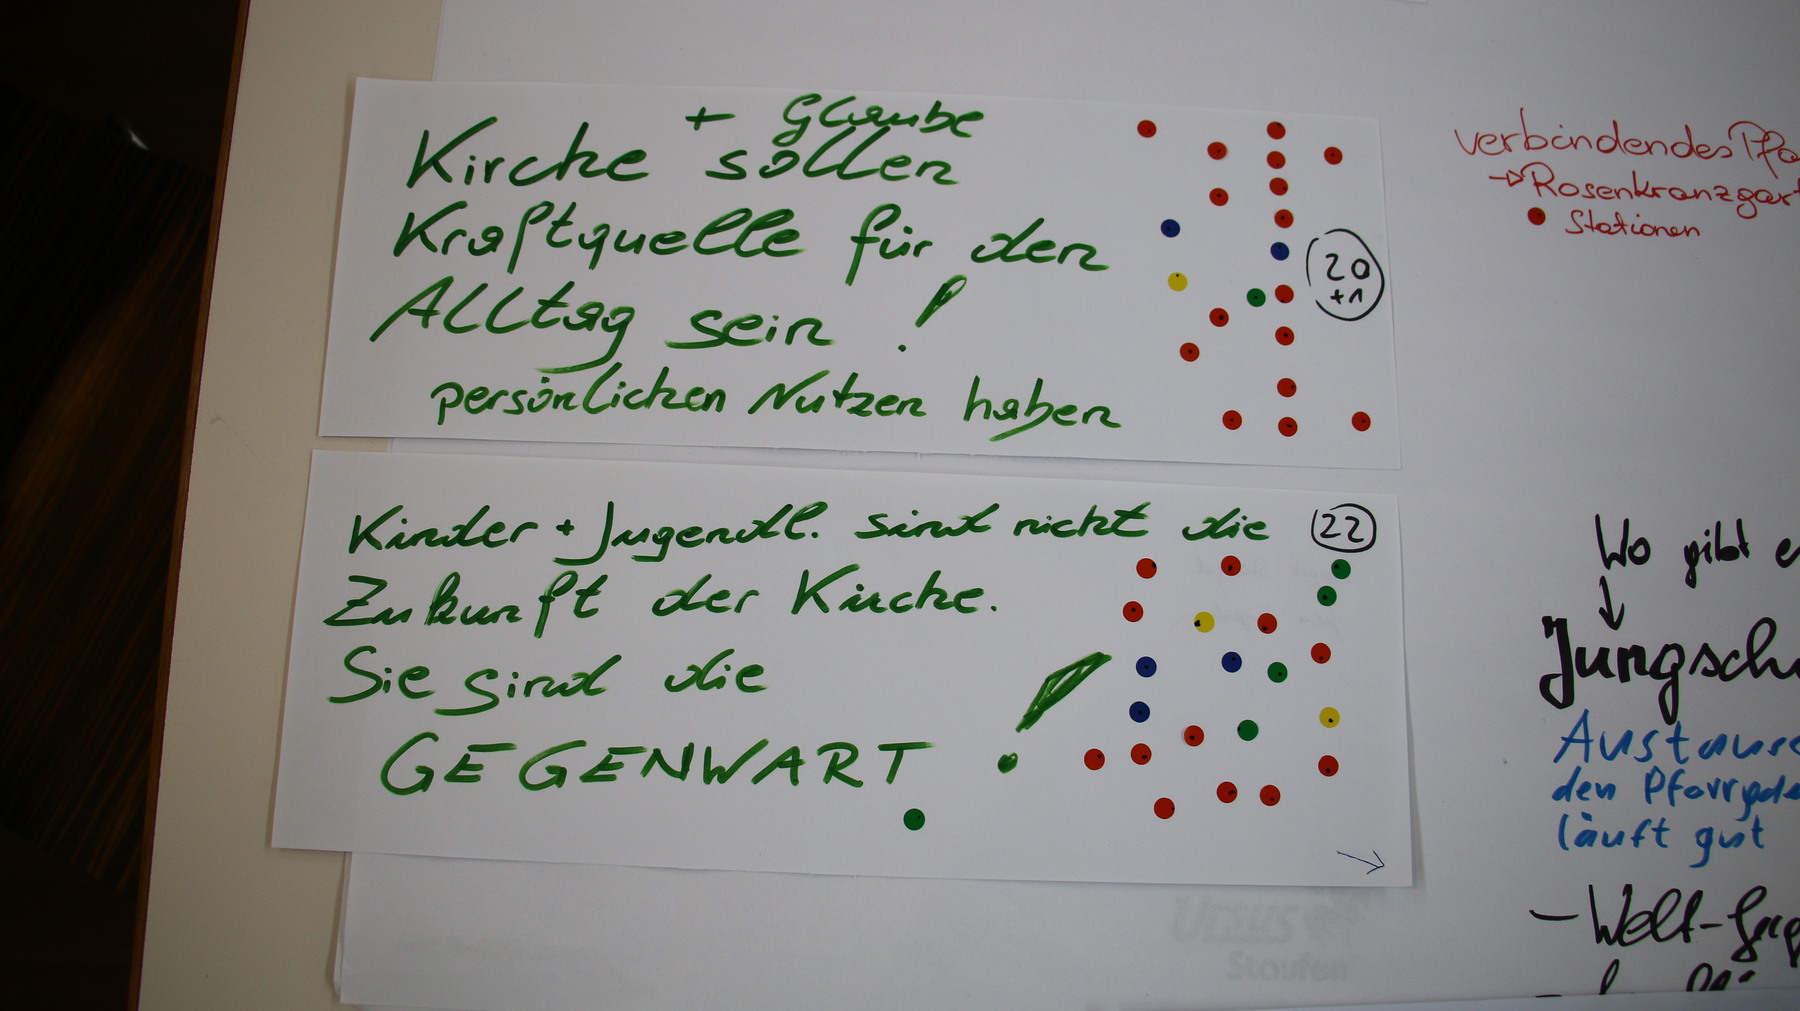 + Glaube
Kirche sollen
Kraftquelle für den
Alltag sein !
persönlichen Nutzen haben
20
+1
Kinder + Jugendl. sind nicht die
22
Zukunft der Kirche.
Sie sind die
GEGENWART !
verbindendes
→ Rosenkranzgart
Stationen
Wo gibt e
↓
Jungsch
Austausc
den Pfarrgde
läuft gut
- Welt-
Ursus
Staufen